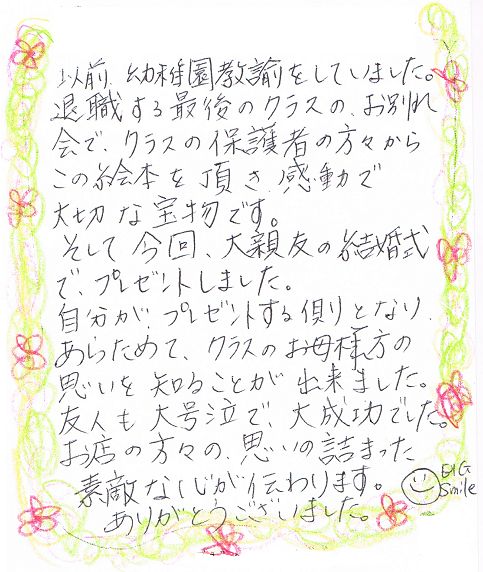 以前、幼稚園教諭をしていました。
退職する最後のクラスの、お別れ
会で、クラスの保護者の方々から
この絵本を頂き、感動で
大切な宝物です。
そして今回、大親友の結婚式
で、プレゼントしました。
自分が、プレゼントする側となり、
あらためて、クラスのお母様方の
思いを知ることが出来ました。
友人も大号泣で、大成功でした。
お店の方々の、思いの詰まった
素敵な心が伝わります。
ありがとうございました。
BIG
Smile